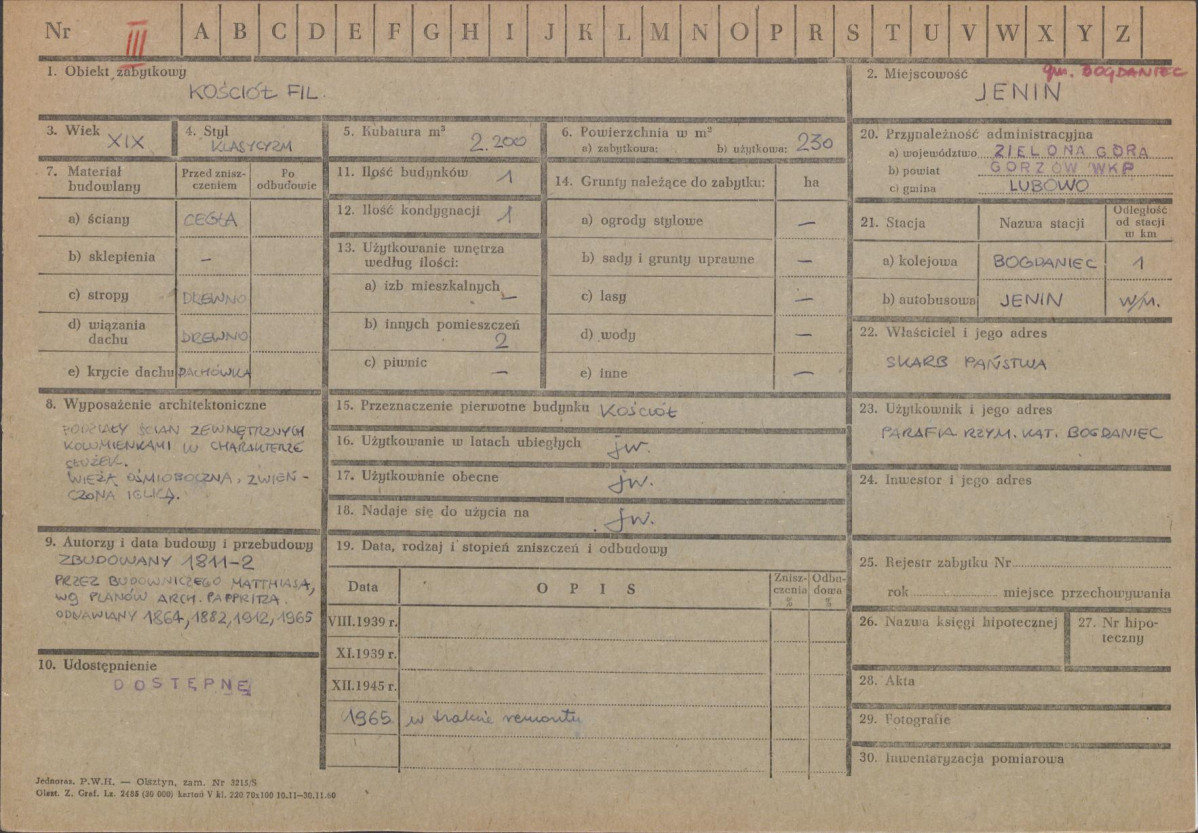 Nr III A B C D E F G H I J K L M N O P R S T U V W X Y Z
1. Obiekt zabytkowy
KOŚCIÓŁ FIL.
2. Miejscowość
gm. BOGDANIEC
JENIN
3. Wiek
XIX
4. Styl
KLASYCYZM
5. Kubatura m³
2.200
6. Powierzchnia w m²
a) zabytkowa: b) użytkowa: 230
7. Materiał budowlany
Przed zniszczeniem
Po odbudowie
a) ściany CEGŁA
b) sklepienia –
c) stropy DREWNO
d) wiązania dachu DREWNO
e) krycie dachu DACHÓWKA
8. Wyposażenie architektoniczne
PODZIAŁY ŚCIAN ZEWNĘTRZNYCH
KOLUMIENKAMI W CHARAKTERZE
SŁUŻEK.
WIEŻA OŚMIOBOCZNA, ZWIEŃ-
CZONA IGLICĄ.
9. Autorzy i data budowy i przebudowy
ZBUDOWANY 1811-2
PRZEZ BUDOWNICZEGO MATTHIASA,
WG PLANÓW ARCH. PAPPRITZA.
ODNAWIANY 1864, 1882, 1912, 1965
10. Udostępnienie
DOSTĘPNE
11. Ilość budynków 1
12. Ilość kondygnacji 1
13. Użytkowanie wnętrza
według ilości:
a) izb mieszkalnych –
b) innych pomieszczeń
2
c) piwnic –
14. Grunty należące do zabytku: ha
a) ogrody stylowe –
b) sady i grunty uprawne –
c) lasy –
d) wody –
e) inne –
15. Przeznaczenie pierwotne budynku KOŚCIÓŁ
16. Użytkowanie w latach ubiegłych jw.
17. Użytkowanie obecne jw.
18. Nadaje się do użycia na jw.
19. Data, rodzaj i stopień zniszczeń i odbudowy
Data OPIS Znisz-
czenia
% Odbu-
dowa
%
VIII.1939 r.
XI.1939 r.
XII.1945 r.
1965 w trakcie remontu
20. Przynależność administracyjna
a) województwo ZIELONA GÓRA
b) powiat GORZÓW WKP
c) gmina LUBOWO
21. Stacja Nazwa stacji Odległość
od stacji
w km
a) kolejowa BOGDANIEC 1
b) autobusowa JENIN W/M.
22. Właściciel i jego adres
SKARB PAŃSTWA
23. Użytkownik i jego adres
PARAFIA RZYM. KAT. BOGDANIEC
24. Inwestor i jego adres
25. Rejestr zabytku Nr
rok miejsce przechowywania
26. Nazwa księgi hipotecznej
27. Nr hipo-
teczny
28. Akta
29. Fotografie
30. Inwentaryzacja pomiarowa
Jednoraz. P.W.H. — Olsztyn, zam. Nr 3215/S
Olszt. Z. Graf. Lz. 2485 (30 000) kartoń V kl. 220 70x100 10.11—30.11.60